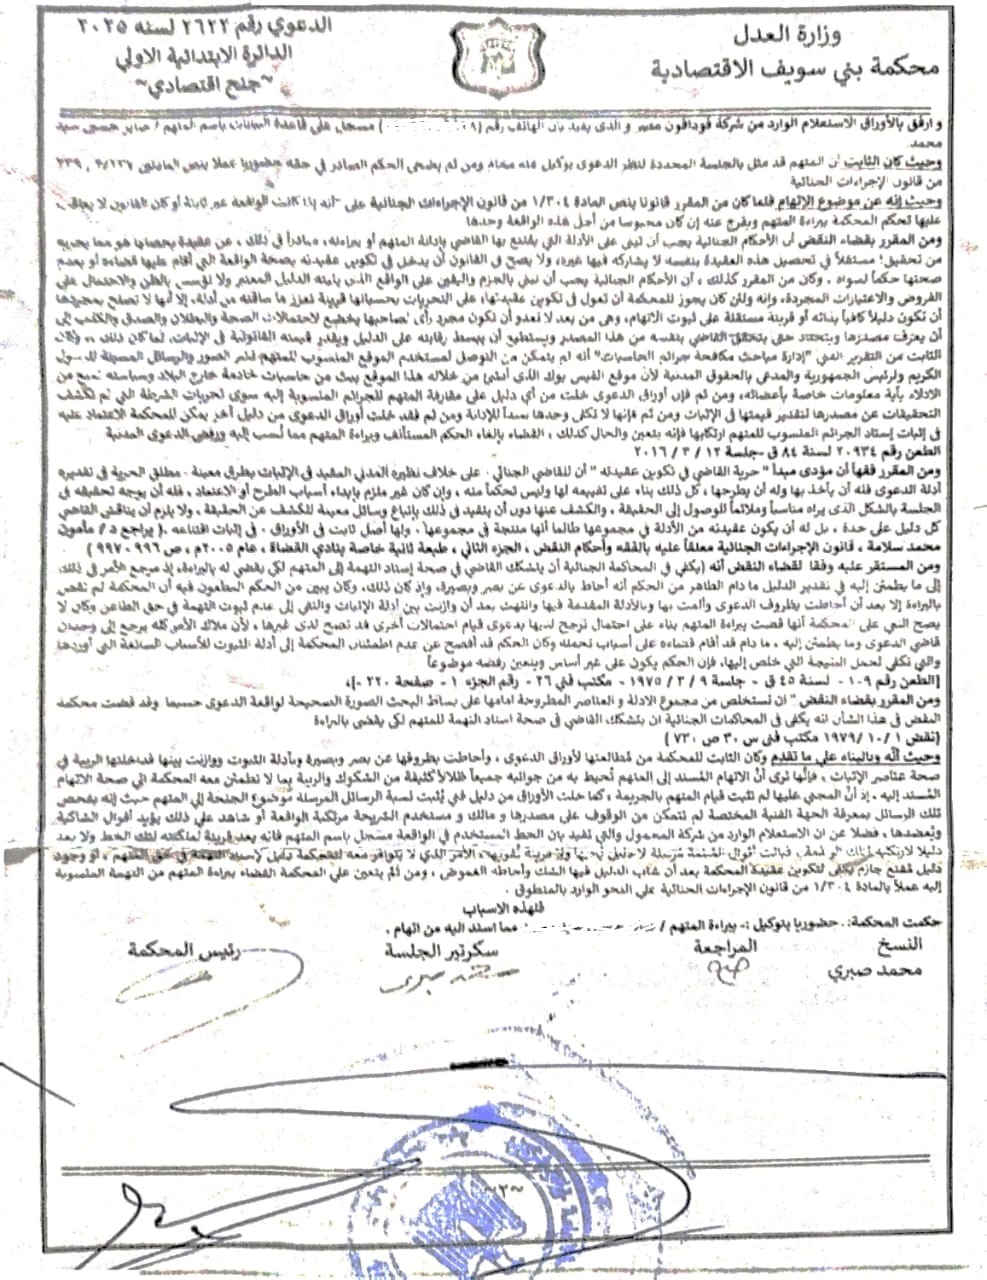 وزارة العدل
محكمة بني سويف الاقتصادية
الدعوي رقم ٢٦٢٢ لسنه ٢٠٢٥
الدائرة الابتدائية الاولي
~جنح اقتصادي~
و ارفق بالأوراق الاستعلام الوارد من شركة فودافون مصر و الذى يفيد بان الهاتف رقم ( ٢٨) مسجل على قاعدة البيانات باسم المتهم / صابر حسين سيد
محمد.
وحيث كان الثابت أن المتهم قد مثل بالجلسة المحددة لنظر الدعوى بوكيل عنه محام ومن ثم يضحى الحكم الصادر في حقه حضوريا عملا بنص المادتين ٢٣٧/ ، ٢٣٩
من قانون الإجراءات الجنائية
وحيث إنه عن موضوع الإتهام فلما كان من المقرر قانونا بنص المادة ١/٣٠٤ من قانون الإجراءات الجنائية على "أنه إذا كانت الواقعة غير ثابتة أو كان القانون لا يعاقب
عليها تحكم المحكمة ببراءة المتهم ويفرج عنه إن كان محبوسا من أجل هذه الواقعة وحدها
ومن المقرر بقضاء النقض أن الأحكام الجنائية يجب أن تبنى على الأدلة التي يقتنع بها القاضي بإدانة المتهم أو براءته، صادراً في ذلك ، عن عقيدة يحصلها هو مما يجريه
من تحقيق؛ مستقلاً في تحصيل هذه العقيدة بنفسه لا يشاركه فيها غيره، ولا يصح في القانون أن يدخل في تكوين عقيدته بصحة الواقعة التي أقام عليها قضاءه أو بعدم
صحتها حكماً لسواه . وكان من المقرر كذلك ، أن الأحكام الجنائية يجب أن تبنى بالجزم واليقين على الواقع الذى يثبته الدليل المعتبر ولا تؤسس بالظن والاحتمال على
الفروض والاعتبارات المجردة، وإنه ولئن كان يجوز للمحكمة أن تعول في تكوين عقيدتها، على التحريات بحسبانها قرينة تعزز ما ساقته من أدلة، إلا أنها لا تصلح بمجردها
أن تكون دليلاً كافياً بذاته أو قرينة مستقلة على ثبوت الاتهام، وهى من بعد لا تعدو أن تكون مجرد رأى لصاحبها يخضع لاحتمالات الصحة والبطلان والصدق والكذب إلى
أن يعرف مصدرها ويتحدد حتى يتحقق القاضي بنفسه من هذا المصدر ويستطيع أن يبسط رقابته على الدليل ويقدر قيمته القانونية في الإثبات، لما كان ذلك ، وكان
الثابت من التقرير الفني "إدارة مباحث مكافحة جرائم الحاسبات" أنه لم يتمكن من التوصل لمستخدم الموقع المنسوب للمتهم نشر الصور والرسائل المسيئة للرسول
الكريم ولرئيس الجمهورية والمدعى بالحقوق المدنية لأن موقع الفيس بوك الذى أنشئ من خلاله هذا الموقع يبث من حاسبات خادمة خارج البلاد وسياسته تمنع من
الادلاء بأية معلومات خاصة بأعضائه، ومن ثم فإن أوراق الدعوى خلت من أي دليل على مقارفة المتهم للجرائم المنسوبة إليه سوى تحريات الشرطة التي لم تكشف
التحقيقات عن مصدرها لتقدير قيمتها في الإثبات ومن ثم فإنها لا تكفى وحدها سنداً للإدانة ومن ثم فقد خلت أوراق الدعوى من دليل آخر يمكن للمحكمة الاعتماد عليه
في إثبات إسناد الجرائم المنسوب للمتهم ارتكابها فإنه يتعين والحال كذلك ، القضاء بإلغاء الحكم المستأنف وبراءة المتهم مما نُسب إليه ورفض الدعوى المدنية
الطعن رقم ٢٠٩٣٤ لسنة ٨٤ ق -جلسة ١٢ / ٣ / ٢٠١٦
ومن المقرر فقهاً أن مؤدى مبدأ " حرية القاضي في تكوين عقيدته " أن للقاضي الجنائي - على خلاف نظيره المدني المقيد في الإثبات بطرق معينة - مطلق الحرية في تقديره
أدلة الدعوى فله أن يأخذ بها وله أن يطرحها ، كل ذلك بناء على تقييمه لها وليس تحكماً منه ، وإن كان غير ملزم بإبداء أسباب الطرح أو الاعتماد ، فله أن يوجه تحقيقه في
الجلسة بالشكل الذى يراه مناسباً وملائماً للوصول إلى الحقيقة ، والكشف عنها دون أن يتقيد في ذلك بإتباع وسائل معينة للكشف عن الحقيقة ، ولا يلزم أن يناقش القاضي
كل دليل على حدة ، بل له أن يكون عقيدته من الأدلة في مجموعها طالما أنها منتجة في مجموعها ، ولها أصل ثابت في الأوراق - في إثبات اقتناعه .( يراجع د / مأمون
محمد سلامة ، قانون الإجراءات الجنائية معلقاً عليه بالفقه وأحكام النقض ، الجزء الثاني ، طبعة ثانية خاصة بنادي القضاة ، عام ٢٠٠٥م ، ص ٩٩٦، ٩٩٧ )
ومن المستقر عليه وفقا لقضاء النقض أنه (يكفى في المحاكمة الجنائية أن يتشكك القاضي في صحة إسناد التهمة إلى المتهم لكي يقضي له بالبراءة، إذ مرجع الأمر في ذلك
إلى ما يطمئن إليه في تقدير الدليل ما دام الظاهر من الحكم أنه أحاط بالدعوى عن بصر وبصيرة، وإذ كان ذلك، وكان يبين من الحكم المطعون فيه أن المحكمة لم تقض
بالبراءة إلا بعد أن أحاطت بظروف الدعوى وألمت بها وبالأدلة المقدمة فيها وانتهت بعد أن وازنت بين أدلة الإثبات والنفي إلى عدم ثبوت التهمة في حق الطاعن وكان لا
يصح النعي على المحكمة أنها قضت ببراءة المتهم بناء على احتمال ترجح لديها بدعوى قيام احتمالات أخرى قد تصح لدى غيرها ، لأن ملاك الأمر كله يرجع إلى وجدان
قاضي الدعوى وما يطمئن إليه ، ما دام قد أقام قضاءه على أسباب تحمله وكان الحكم قد أفصح عن عدم اطمئنان المحكمة إلى أدلة الثبوت للأسباب السائغة التي أوردها
والتي تكفي لحمل النتيجة التي خلص إليها، فإن الحكم يكون على غير أساس ويتعين رفضه موضوعاً
[الطعن رقم ١٠٩ - لسنة ٤٥ ق - جلسة ٩ / ٣ / ١٩٧٥ - مكتب فني ٢٦ - رقم الجزء ١ - صفحة ٢٢٠ -]،
ومن المقرر بقضاء النقض " ان تستخلص من مجموع الادلة و العناصر المطروحة امامها على بساط البحث الصورة الصحيحة لواقعة الدعوى حسبما وقد قضت محكمه
النقض في هذا الشأن انه يكفى في المحاكمات الجنائية ان يتشكك القاضي في صحة اسناد التهمة للمتهم لكى يقضى بالبراءة
(نقض ١ / ١٠ / ١٩٧٩ مكتب فنى س ٣٠ ص ٧٣٠ )
وحيث أنَّه وبالبناء على ما تقدم وكان الثابت للمحكمة من مُطالعتها لأوراق الدعوى ، وأحاطت بظروفها عن بصر وبصيرة وبأدلة الثبوت ووازنت بينها فداخلتها الريبة في
صحة عناصر الإثبات ، فإنَّها ترى أنَّ الاتهام المُسند إلى المتهم تُحيط به من جوانبه جميعاً ظلالاً كثيفة من الشكوك والريبة بما لا تطمئن معه المحكمة إلى صحة الاتهام
المُسند إليه . إذ أنَّ المجني عليها لم تثبت قيام المتهم بالجريمة ، كما خلت الأوراق من دليل فني يُثبت نسبة الرسائل المرسله موضوع الجنحة إلي المتهم حيث إنه بفحص
تلك الرسائل بمعرفة الجهة الفنية المختصة لم تتمكن من الوقوف على مصدرها و مالك و مستخدم الشريحة مرتكبة الواقعة أو شاهد علي ذلك يؤيد أقوال الشاكية
ويُعضدها ، فضلا عن ان الاستعلام الوارد من شركة المحمول والتي تفيد بان الخط المستخدم في الواقعة مسجل باسم المتهم فانه يعد قرينة لملكيته لذلك الخط ولا يعد
دليلا لارتكابه لتلك الواقعة ، فباتت أقوال مُرسلة لا دليل الأمر الذي لا يتوافر معه للمحكمة دليل لإسناد التهمة في حق المتهم ، أو وجود
دليل مُقنع جازم يكفي لتكوين عقيدة المحكمة بعد أن شاب الدليل فيها الشك وأحاطه الغموض ، ومن ثمَّ يتعين علي المحكمة القضاء ببراءة المتهم من التهمة المنسوبة
إليه عملاً بالمادة ١/٣٠٤ من قانون الإجراءات الجنائية على النحو الوارد بالمنطوق .
فلهذه الاسباب
حكمت المحكمة:. حضوريا بتوكيل :- ببراءة المتهم / مما اسند اليه من اتهام .
النسخ المراجعة سكرتير الجلسة رئيس المحكمة
محمد صبري
~٢~